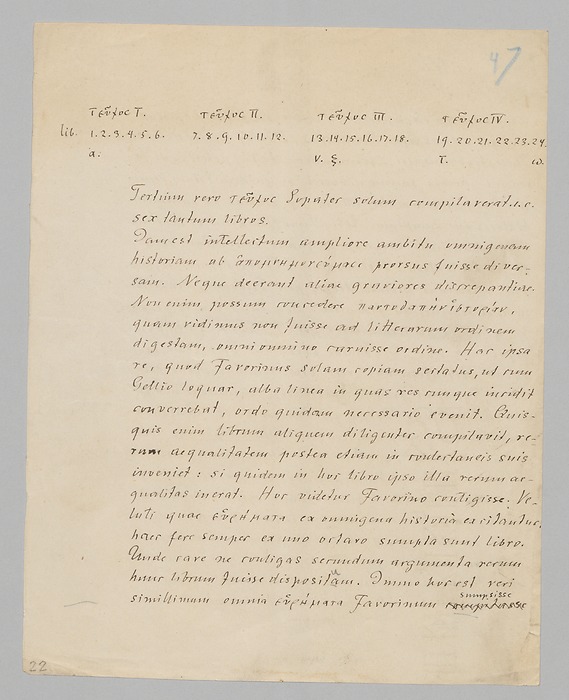 47
τεῦχος I. τεῦχος II. τεῦχος III. τεῦχος IV.
lib. 1.2.3.4.5.6. 7.8.9.10.11.12. 13.14.15.16.17.18. 19.20.21.22.23.24.
α. ν. ξ. τ. ω.
Tertium vero τεῦχος Sopater solum compilaverat i.e.
sex tantum libros.
Iam est intellectum ampliore ambitu omnigenam
historiam ab ἀπομνημονεύμασι prorsus fuisse diver-
sam. Neque deerant aliae graviores discrepantiae.
Non enim possum concedere παντοδαπὴν ἱστορίαν,
quam vidimus non fuisse ad litterarum ordinem
digestam, omni omnino caruisse ordine. Hac ipsa
re, quod Favorinus solam copiam sectatus, ut cum
Gellio loquar, alba linea in quas res cunque incidit
converrebat, ordo quidam necessario evenit. Quis-
quis enim librum aliquem diligenter compilavit, re-
rum aequalitatem postea etiam in conlectaneis suis
inveniet: si quidem in hoc libro ipso illa rerum ae-
qualitas inerat. Hoc videtur Favorino contigisse. Ve-
luti quae εὑρήματα ex omnigena historia excitantur,
haec fere semper ex uno octavo sumpta sunt libro.
Unde cave ne colligas secundum argumenta rerum
hunc librum fuisse dispositum. Immo hoc est veri
simillimum omnia εὑρήματα Favorinum sumpsisse
22